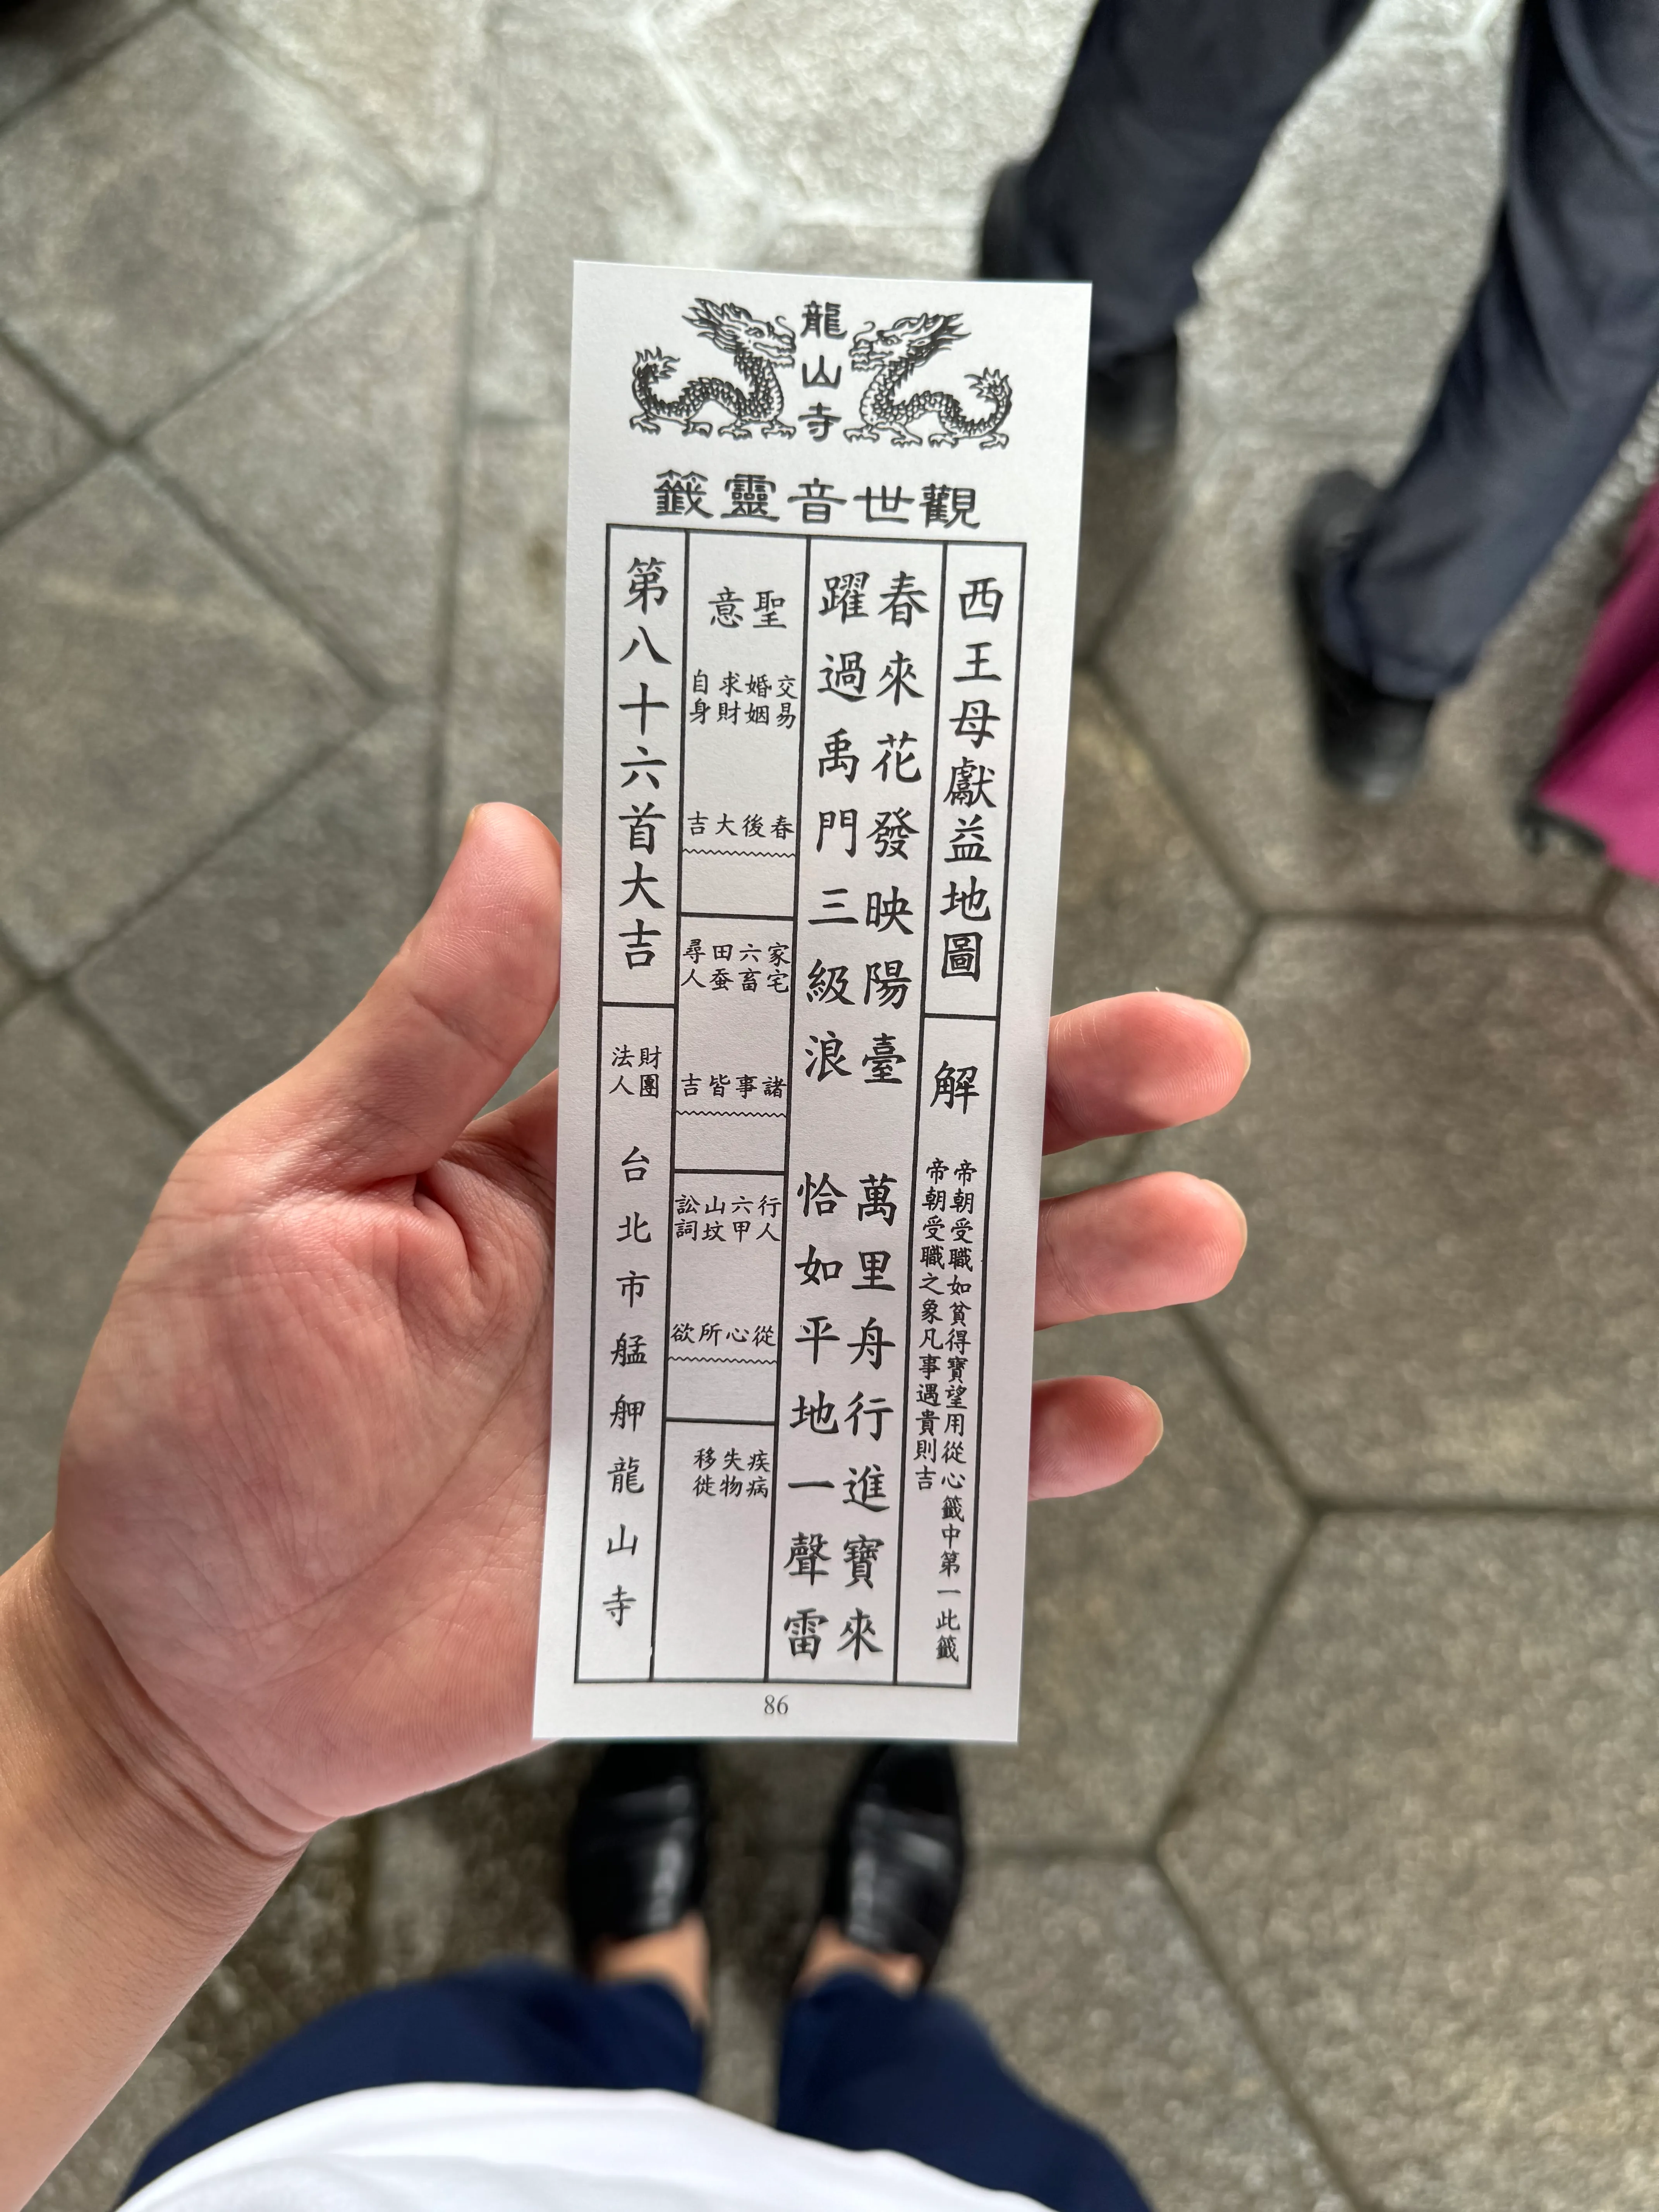 龍山寺
觀世音靈籤
西王母獻益地圖
解
帝朝受職如貧得寶望用從心籤中第一此籤
帝朝受職之象凡事遇貴則吉
春來花發映陽臺
萬里舟行進寶來
躍過禹門三級浪
恰如平地一聲雷
聖意
交易
婚姻
求財
自身
春後大吉
家宅
六畜
田蚕
尋人
諸事皆吉
行人
六甲
山坟
訟詞
從心所欲
疾病
失物
移徙
第八十六首大吉
財團
法人
台北市艋舺龍山寺
86